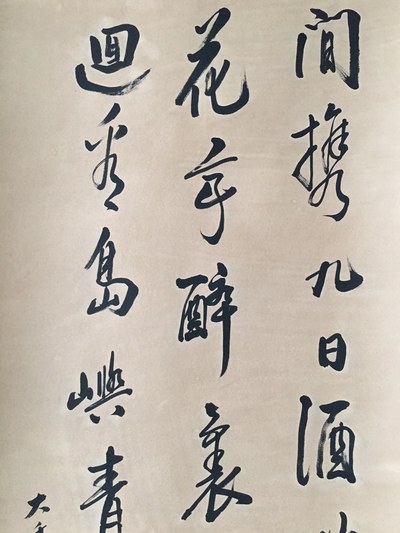 間携九日酒
花醉裏
迴看島嶼青
大千